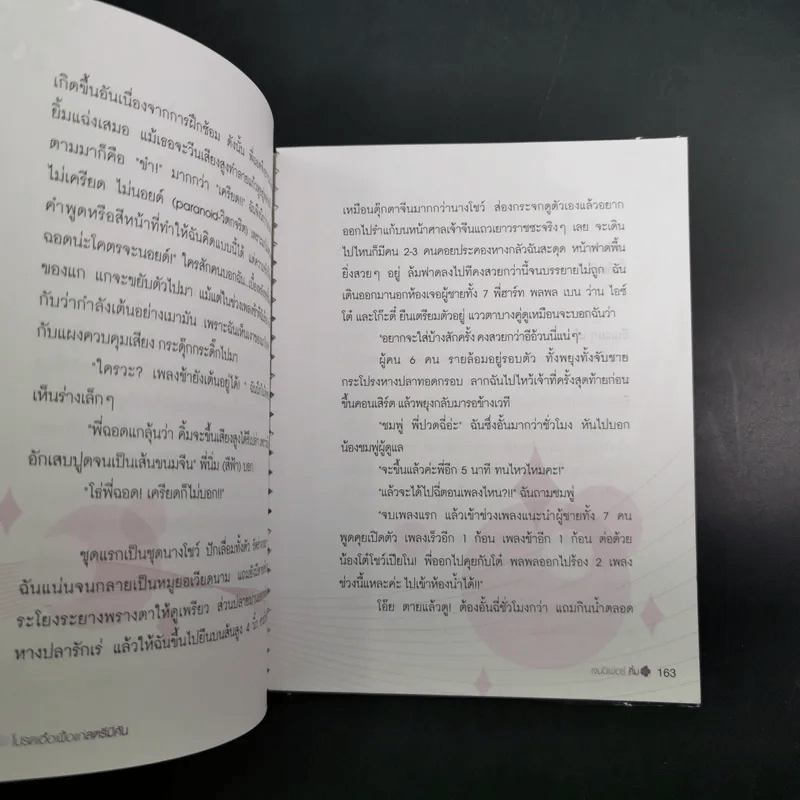 เกิดขึ้นอันเนื่องจากการฝึกซ้อม ดังนั้น
ยิ้มแฉ่งเสมอ แม้เธอจะวีนเสียงสูงทำลาย
ตามมาก็คือ "ขำ!" มากกว่า "เครียด!!"
ไม่เครียด ไม่นอยด์ (paranoid-วิตกจริต)
คำพูดหรือสีหน้าที่ทำให้ฉันคิดแบบนี้ได้
ฉอดน่ะโคตรจะนอยด์!" ใครสักคนบอกฉัน
ของแก แกจะขยับตัวไปมา แม้แต่ในช่วงเพลงช้า
กับว่ากำลังเต้นอย่างเมามัน เพราะฉันเห็นเงา
กับแผงควบคุมเสียง กระดุ๊กกระดิ๊กไปมา
"ใครวะ? เพลงช้ายังเต้นอยู่ได้!"
เห็นร่างเล็กๆ
"พี่ฉอดแกลุ้นว่า คิ้มจะขึ้นเสียงสูงได้
อักเสบปูดจนเป็นเส้นขนมจีน" พี่นิ่ม (สีฟ้า) บอก
"โธ่พี่ฉอด! เครียดก็ไม่บอก!!"
ชุดแรกเป็นชุดนางโชว์ ปักเลื่อมทั้งตัว
ฉันแน่นจนกลายเป็นหมูยอเวียดนาม
ระโยงระยางพรางตาให้ดูเพรียว ส่วนปลาย
หางปลารักเร่ แล้วให้ฉันขึ้นไปยืนบนส้นสูง 4 นิ้ว
โปรดเอื้อเฟื้อแก่สตรีมีคัน
เหมือนตุ๊กตาจีนมากกว่านางโชว์ ส่องกระจกดูตัวเองแล้วอยาก
ออกไปรำแก้บนหน้าศาลเจ้าจีนแถวเยาวราชซะจริงๆ เลย จะเดิน
ไปไหนก็มีคน 2-3 คนคอยประคองหางกลัวฉันสะดุด หน้าฟาดพื้น
ยิ่งสวยๆ อยู่ ล้มฟาดลงไปทีคงสวยกว่านี้จนบรรยายไม่ถูก ฉัน
เดินออกมานอกห้องเจอผู้ชายทั้ง 7 พี่ฮาร์ท พลพล เบน ว่าน ไอซ์
โต๋ และโก๊ะตี๋ ยืนเตรียมตัวอยู่ แววตาบางคู่ดูเหมือนจะบอกฉันว่า
"อยากจะใส่บ้างสักครั้ง คงสวยกว่าอีอ้วนนี่แน่ๆ"
ผู้คน 6 คน รายล้อมอยู่รอบตัว ทั้งพยุงทั้งจับชาย
กระโปรงหางปลาทอดกรอบ ลากฉันไปไหว้เจ้าที่ครั้งสุดท้ายก่อน
ขึ้นคอนเสิร์ต แล้วพยุงกลับมารอข้างเวที
"ชมพู่ พี่ปวดฉี่อ่ะ" ฉันซึ่งอั้นมากว่าชั่วโมง หันไปบอก
น้องชมพู่ผู้ดูแล
"จะขึ้นแล้วค่ะพี่อีก 5 นาที ทนไหวไหมคะ!"
"แล้วจะได้ไปฉี่ตอนเพลงไหน?!!" ฉันถามชมพู่
"จบเพลงแรก แล้วเข้าช่วงเพลงแนะนำผู้ชายทั้ง 7 คน
พูดคุยเปิดตัว เพลงเร็วอีก 1 ก้อน เพลงช้าอีก 1 ก้อน ต่อด้วย
น้องโต๋โชว์เปียโน! พี่ออกไปคุยกับโต๋ พลพลออกไปร้อง 2 เพลง
ช่วงนี้แหละค่ะ ไปเข้าห้องน้ำได้!!"
โอ๊ย ตายแล้วตู! ต้องอั้นฉี่ชั่วโมงกว่า แถมกินน้ำตลอด
เจนนิเฟอร์ คิ้ม 163